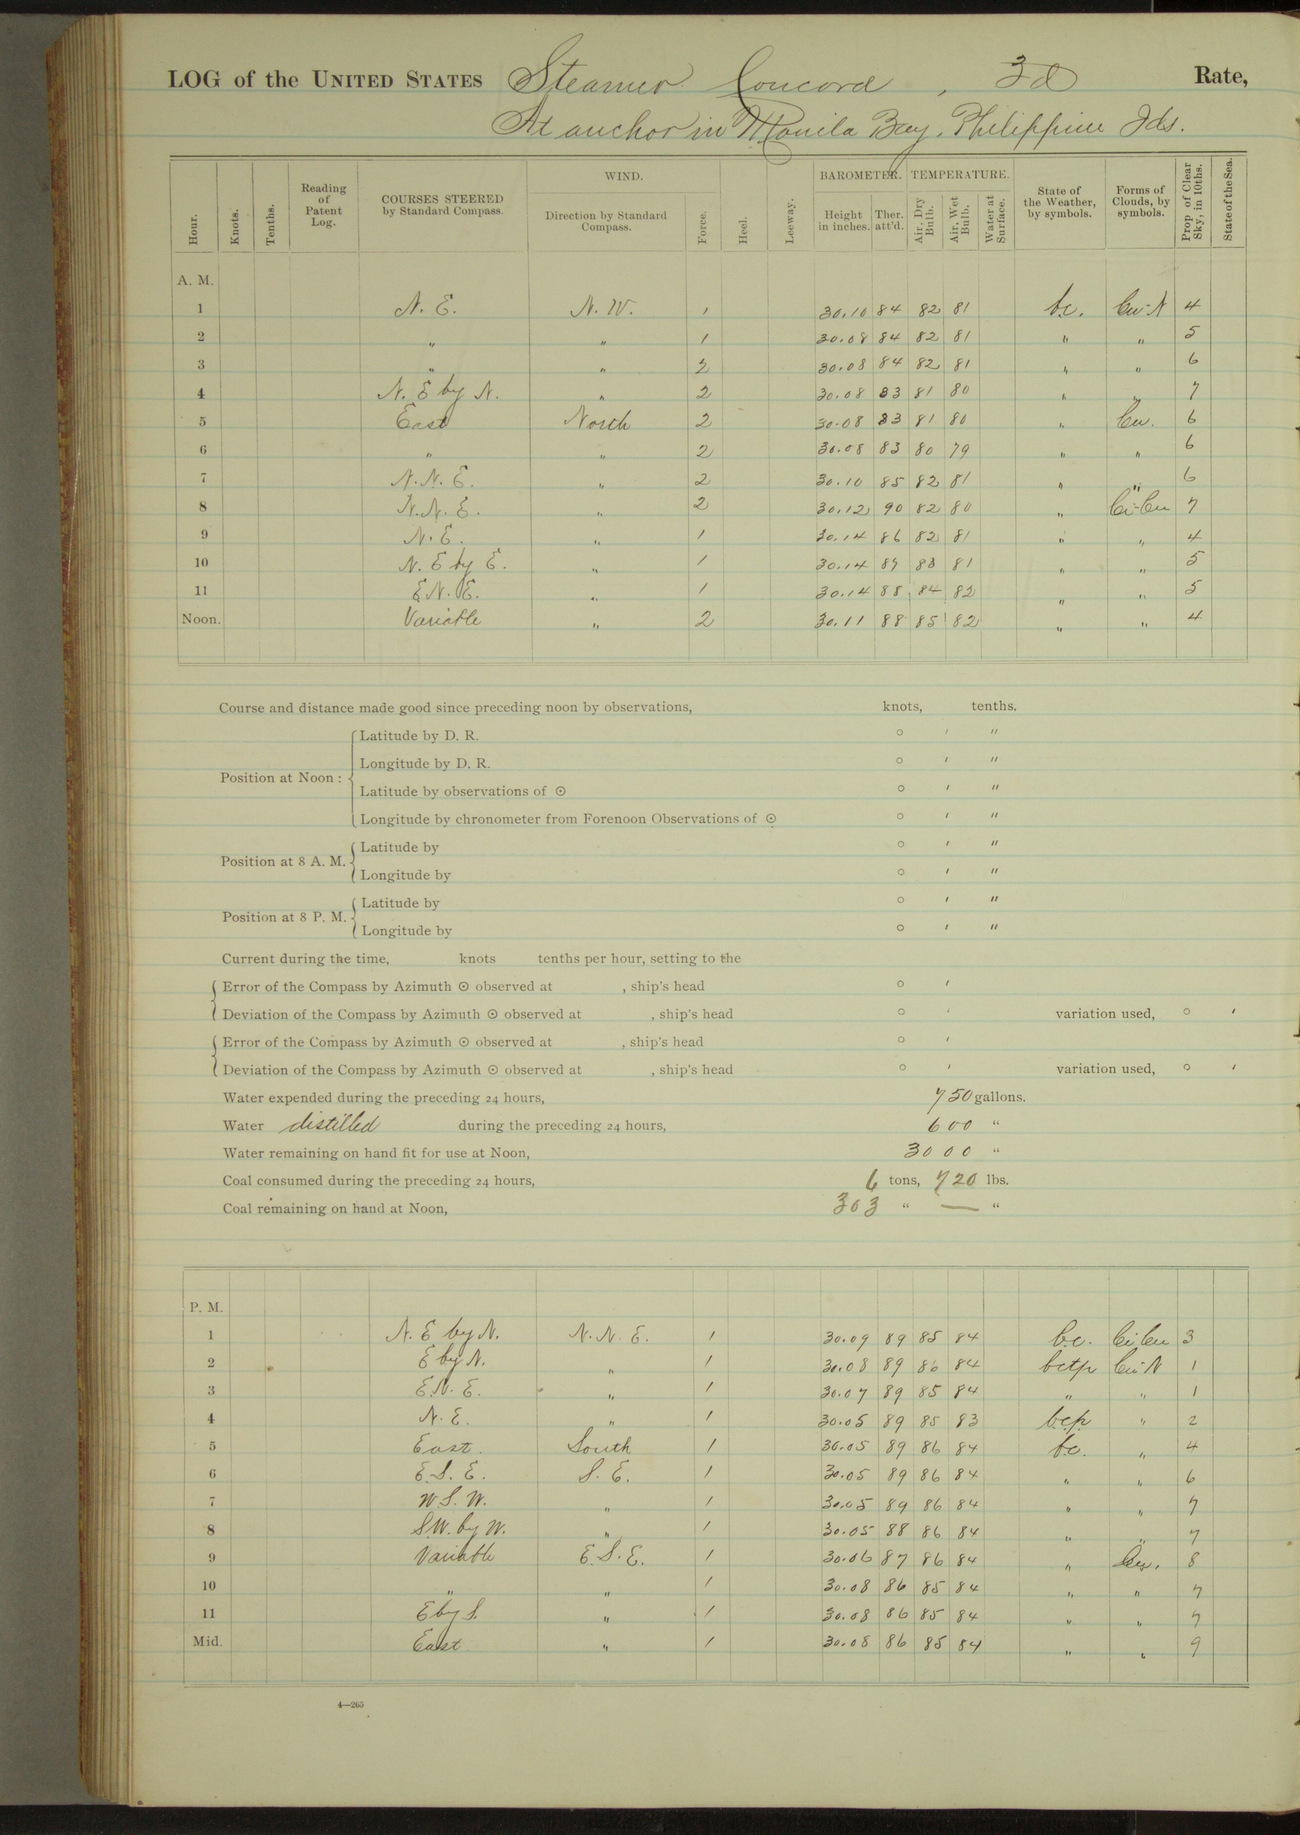 LOG of the UNITED STATES Steamer Concord, 3d Rate,
At anchor in Manila Bay, Philippine Ids.
Hour. Knots. Tenths. Reading of Patent Log. COURSES STEERED by Standard Compass. WIND. Direction by Standard Compass. Force. Heel. Leeway. BAROMETER. Height in inches. Ther. att'd. TEMPERATURE. Air, Dry Bulb. Air, Wet Bulb. Water at Surface. State of the Weather, by symbols. Forms of Clouds, by symbols. Prop. of Clear Sky, in 10ths. State of the Sea.
A. M.
1 N. E. N. W. 1 30.10 84 82 81 b.c. Cu-N 4
2 " " 1 30.08 84 82 81 " " 5
3 " " 2 30.08 84 82 81 " " 6
4 N. E by N. " 2 30.08 83 81 80 " " 7
5 East North 2 30.08 83 81 80 " Cu. 6
6 " " 2 30.08 83 80 79 " " 6
7 N.N. E. " 2 30.10 85 82 81 " " 6
8 N.N. E. " 2 30.12 90 82 80 " Ci-Cu 7
9 N. E. " 1 30.14 86 82 81 " " 4
10 N. E by E. " 1 30.14 87 83 81 " " 5
11 E.N. E. " 1 30.14 88 84 82 " " 5
Noon. Variable " 2 30.11 88 85 82 " " 4
Course and distance made good since preceding noon by observations, knots, tenths.
Position at Noon: Latitude by D. R. ° ′ ″
Longitude by D. R. ° ′ ″
Latitude by observations of ☉ ° ′ ″
Longitude by chronometer from Forenoon Observations of ☉ ° ′ ″
Position at 8 A. M. Latitude by ° ′ ″
Longitude by ° ′ ″
Position at 8 P. M. Latitude by ° ′ ″
Longitude by ° ′ ″
Current during the time, knots tenths per hour, setting to the
Error of the Compass by Azimuth ☉ observed at , ship's head ° ′
Deviation of the Compass by Azimuth ☉ observed at , ship's head ° ′ variation used, ° ′
Error of the Compass by Azimuth ☉ observed at , ship's head ° ′
Deviation of the Compass by Azimuth ☉ observed at , ship's head ° ′ variation used, ° ′
Water expended during the preceding 24 hours, 750 gallons.
Water distilled during the preceding 24 hours, 600 "
Water remaining on hand fit for use at Noon, 3000 "
Coal consumed during the preceding 24 hours, 6 tons, 720 lbs.
Coal remaining on hand at Noon, 303 " — "
P. M.
1 N. E by N. N. N. E. 1 30.09 89 85 84 b.c. Ci-Cu 3
2 E by N. " 1 30.08 89 86 84 bctp Cu-N 1
3 E.N. E. " 1 30.07 89 85 84 " " 1
4 N. E. " 1 30.05 89 85 83 bcp " 2
5 East. South 1 30.05 89 86 84 b.c. " 4
6 E. S. E. S. E. 1 30.05 89 86 84 " " 6
7 W. S. W. " 1 30.05 89 86 84 " " 7
8 S.W. by W. " 1 30.05 88 86 84 " " 7
9 Variable E. S. E. 1 30.06 87 86 84 " Cu. 8
10 " " 1 30.08 86 85 84 " " 7
11 E by S. " 1 30.08 86 85 84 " " 7
Mid. East " 1 30.08 86 85 84 " " 9
4—265